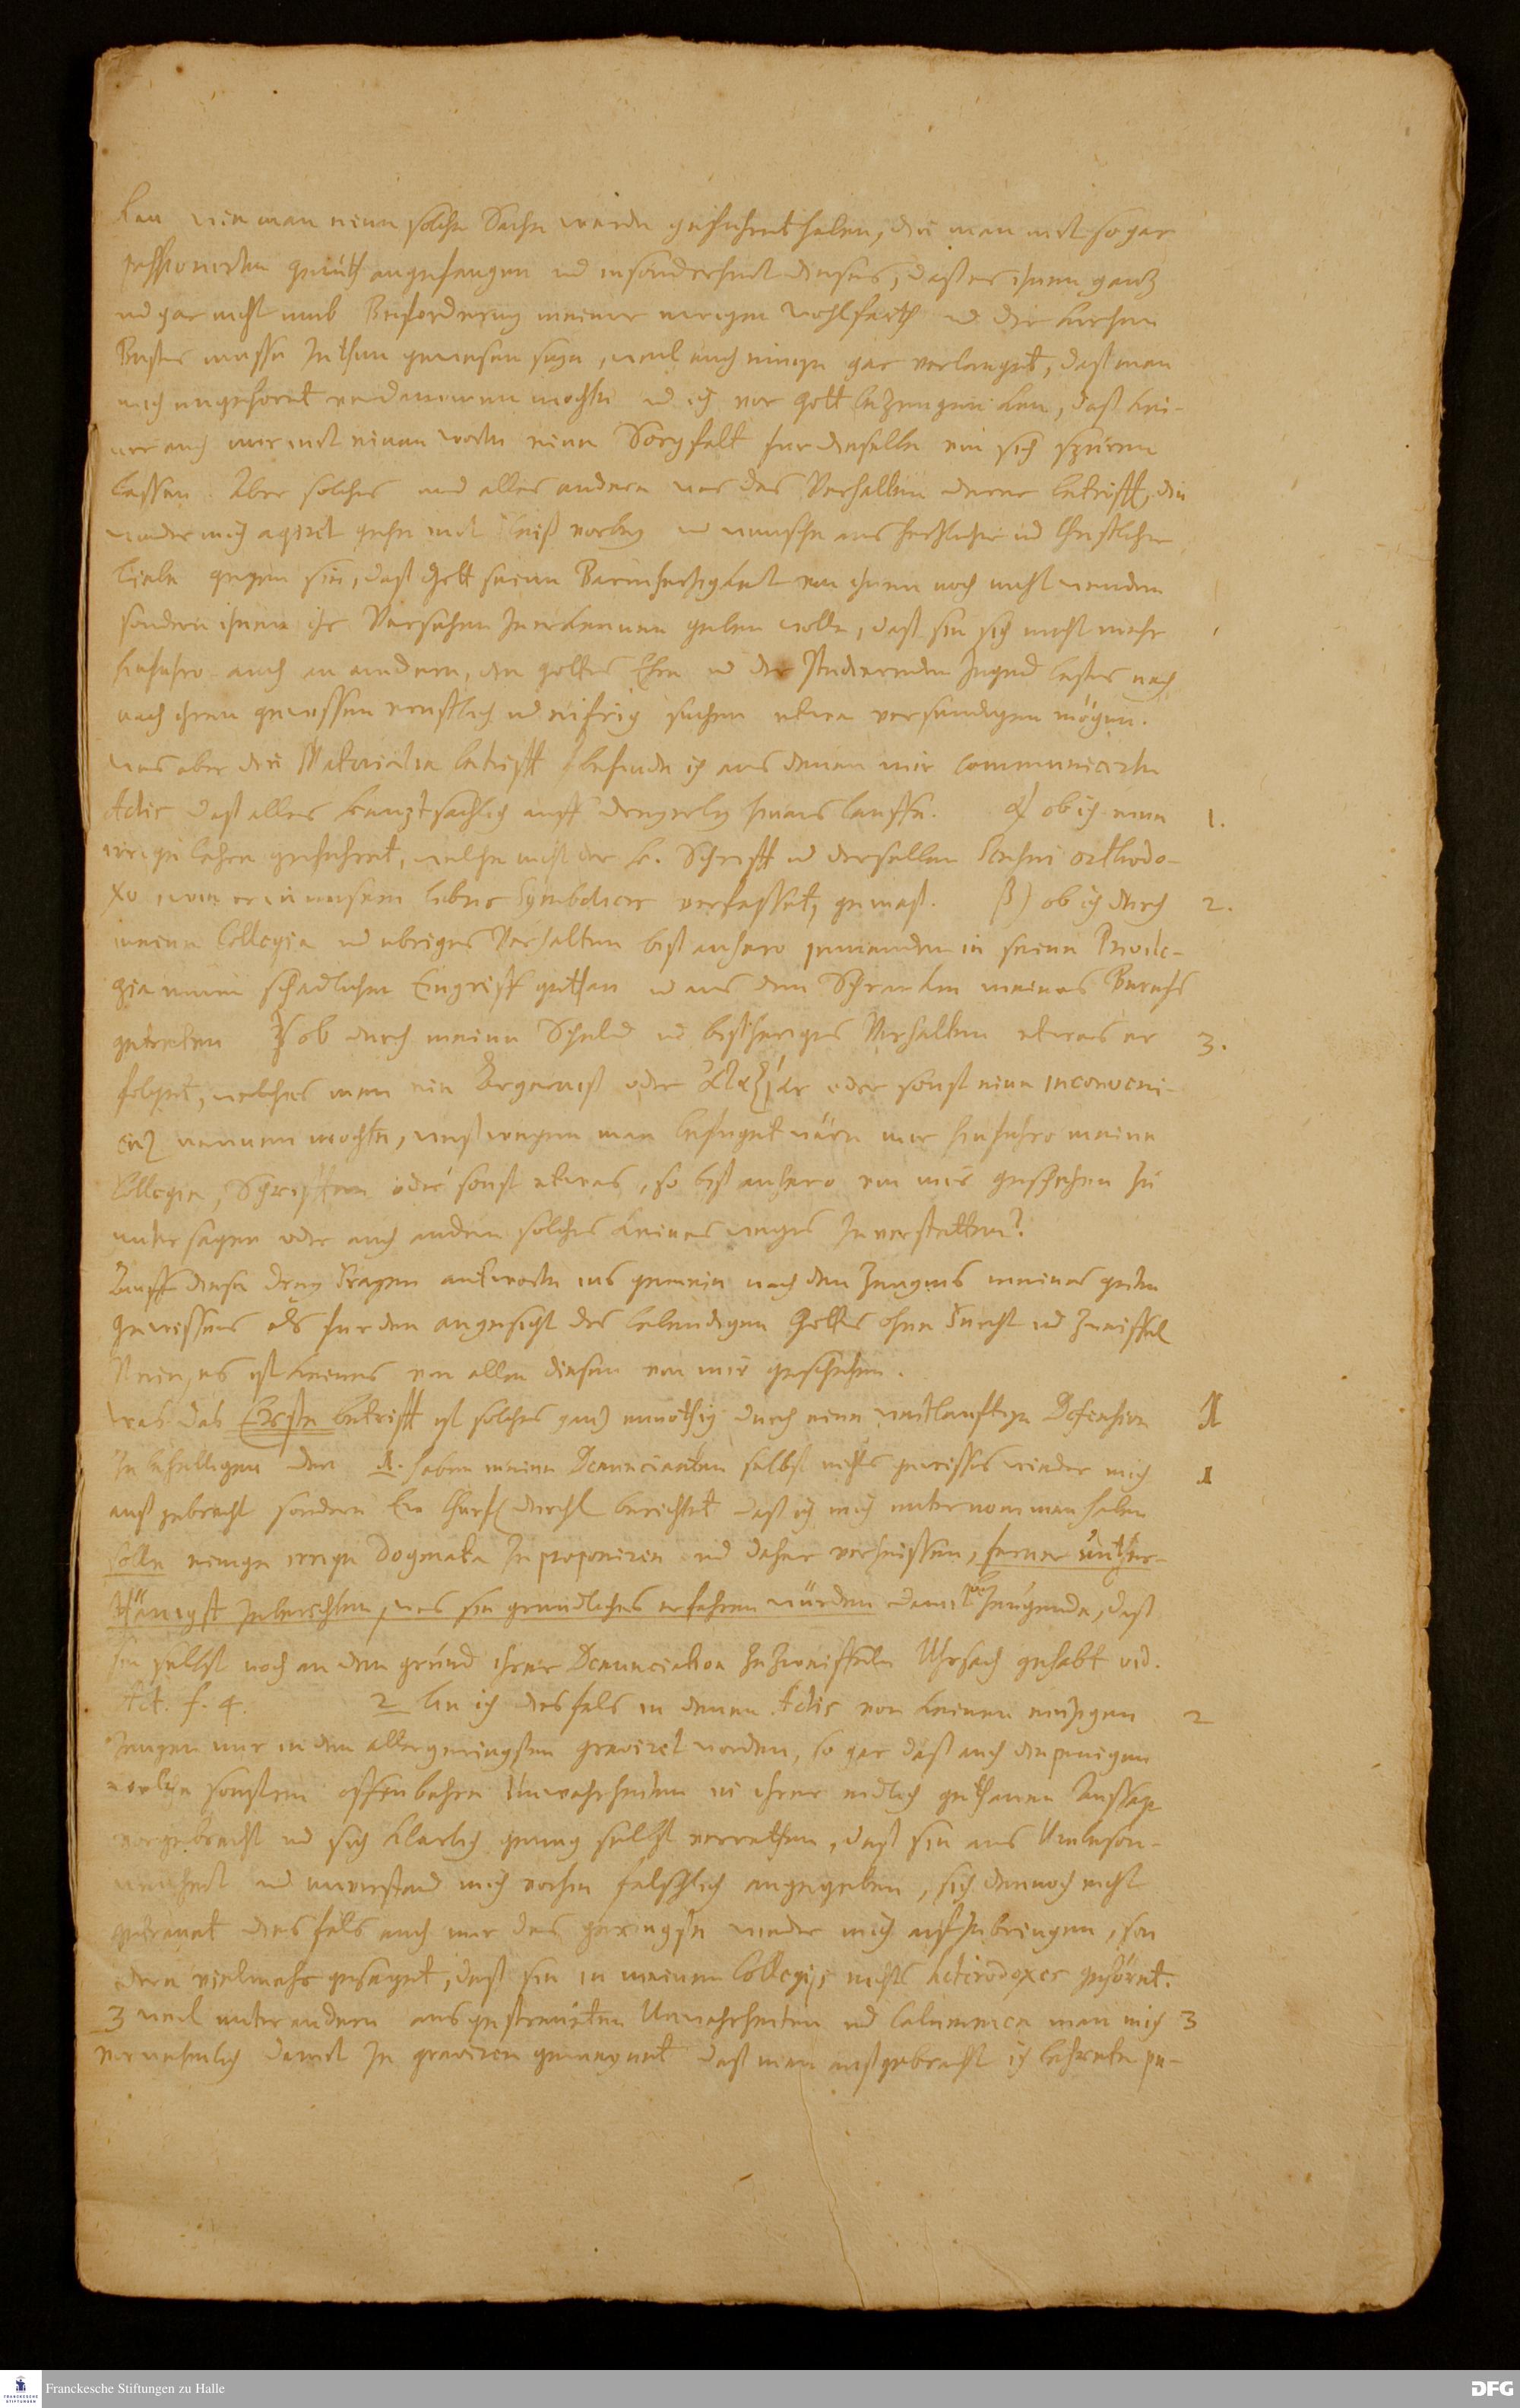 kan wie man eine solche Sache werde geführet haben, die man mit so gar
passionirten gemüth angefangen ud insonderheit dieses, daß es ihnen gantz
ud gar nicht umb Beforderung meiner ewigen wohlfarth ud der kirchen
Bestes müsse zuthun gewesen seyn, weil auch einige gar verlanget, daß man
mich ungehöret verdammen mochte ud ich vor Gott bezeugen kan, daß kei-
ner auch nur mit einem worte eine Sorgfalt fur dieselbe von sich spüren
lassen. Aber solches und alles andere was das Verhalten derer betrifft, die
wieder mich agiret gehe mit fleiß vorbey ud wünsche aus hertzlicher ud Christlicher
liebe gegen sie, daß Gott seine Barmhertzigkeit von ihnen noch nicht wenden
sondern ihnen ihr Versehen zuerkennen geben wolle, daß sie sich nicht mehr
hinfuhro auch an andern, die gottes Ehre ud der studierenden Jugend bestes nach
nach ihrem gewissen ernstlich ud eifrig suchen etwa versundigen mögen.
was aber die Materialia betrifft befinde ich aus denen mir communicirten
Actis daß alles hauptsächlich auff dreyerley hinaus lauffe. α) ob ich eine 1.
irrige lehre geführet, welche nicht der h. Schrifft ud derselben Sensui orthodo-
xo wie er in unsern libris Symbolicis verfasset, gemäß. β) ob ich durch 2.
meine Collegia ud ubriges Verhalten biß anhero jemanden in seine Privile-
gia einen schädlichen Eingriff gethan ud aus den Schrancken meines Beruffs
getreten γ) ob durch meine Schuld ud bißheriges Verhalten etwas er 3.
folget, welches man ein Ärgerniß oder ἀταξίαν oder sonst eine inconveni-
enz nennen mochte, weßwegen man befuget wäre mir hinfuhro meine
Collegia, Schrifften oder sonst etwas, so biß anhero von mir geschehen zu
untersagen oder auch andern solches keines weges zuverstatten?
Auff diese drey Fragen antworte ins gemein nach dem Zeugnis meines guten
gewissens als fur dem angesicht des lebendigen Gottes ohne Furcht ud Zweiffel
Nein, es ist keines von allen diesen von mir geschehen.
was das Erste betrifft ist solches gantz unnöthig durch eine weitlaufftige Defension
zubehelligen den 1. haben meine Denuncianten selbst nichts gewisses wieder mich 1
außgebracht sondern Ew Churf Durchl berichtet daß ich mich unternommen haben
solle einige irrige Dogmata zu proponiren ud daher verheissen, ferner unther-
thänigst zuberichten, was sie grundliches erfahren würden damit bezeugende, daß
sie selbst noch an dem grund ihrer Denunciation zu zweiffeln Uhrsach gehabt vid.
Act. f. 4. 2 bin ich diesfals in denen Actis von keinen einzigen 2
Zeugen nur in dem allergeringsten graviret worden, so gar daß auch diejenigen
welche sonsten offenbahre Unwahrheiten in ihrer eidlich gethanen Aussage
vorgebracht ud sich klarlich genug selbst verrathen, daß sie aus Unbeson-
nenheit ud unverstand mich vorhin falschlich angegeben, sich dennoch nicht
getrauet diesfals auch nur das geringste wieder mich auffzubringen, son
dern vielmehr gesaget, daß sie in meinen Collegijs nichts heterodoxes gehöret.
3 weil unter andern ausgestreueten Unwahrheiten ud Calumnien man mich 3
vornehmlich damit zu graviren gemeynet daß man außgebracht ich lehrete pu-
Franckesche Stiftungen zu Halle
DFG